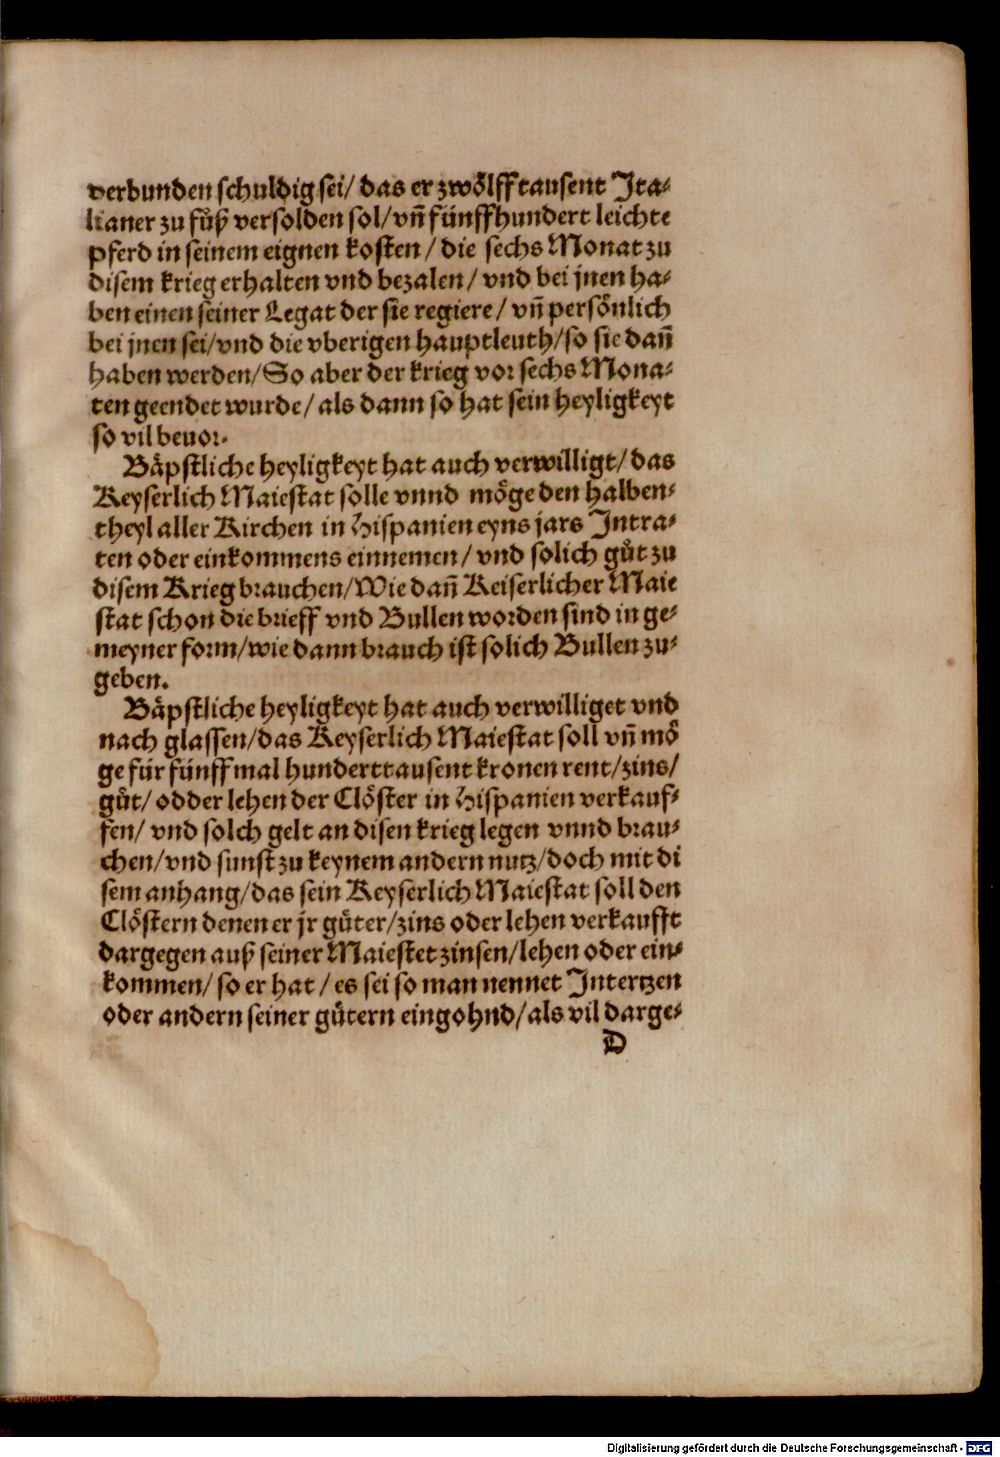 verbunden schuldig sei/ das er zwölfftausent Ita-
lianer zu fůß versolden sol/ vñ fünffhundert leichte
pferd in seinem eignen kosten / die sechs Monat zu
disem krieg erhalten vnd bezalen / vnd bei jnen ha-
ben einen seiner Legat der sie regiere / vñ persönlich
bei jnen sei/vnd die vberigen hauptleuth/so sie dañ
haben werden/So aber der krieg vor sechs Mona-
ten geendet wurde/ als dann so hat sein heyligkeyt
so vil beuor.
Bäpstliche heyligkeyt hat auch verwilligt/ das
Keyserlich Maiestat solle vnnd möge den halben-
theyl aller Kirchen in Hispanien eyns jars Intra-
ten oder einkommens einnemen / vnd solich gůt zu
disem Krieg brauchen/Wie dañ Keiserlicher Maie
stat schon die brieff vnd Bullen worden sind in ge-
meyner form/wie dann brauch ist solich Bullen zu-
geben.
Bäpstliche heyligkeyt hat auch verwilliget vnd
nach glassen/das Keyserlich Maiestat soll vñ mö
ge für fünff mal hunderttausent kronen rent/zins/
gůt/ odder lehen der Clöster in Hispanien verkauf-
fen/ vnd solch gelt an disen krieg legen vnnd brau-
chen/vnd sunst zu keynem andern nutz/doch mit di
sem anhang/das sein Keyserlich Maiestat soll den
Clöstern denen er jr güter/zins oder lehen verkaufft
dargegen auß seiner Maiestet zinsen/lehen oder ein-
kommen/ so er hat / es sei so man nennet Intertzen
oder andern seiner gütern eingohnd/als vil darge-
D
Digitalisierung gefördert durch die Deutsche Forschungsgemeinschaft - DFG